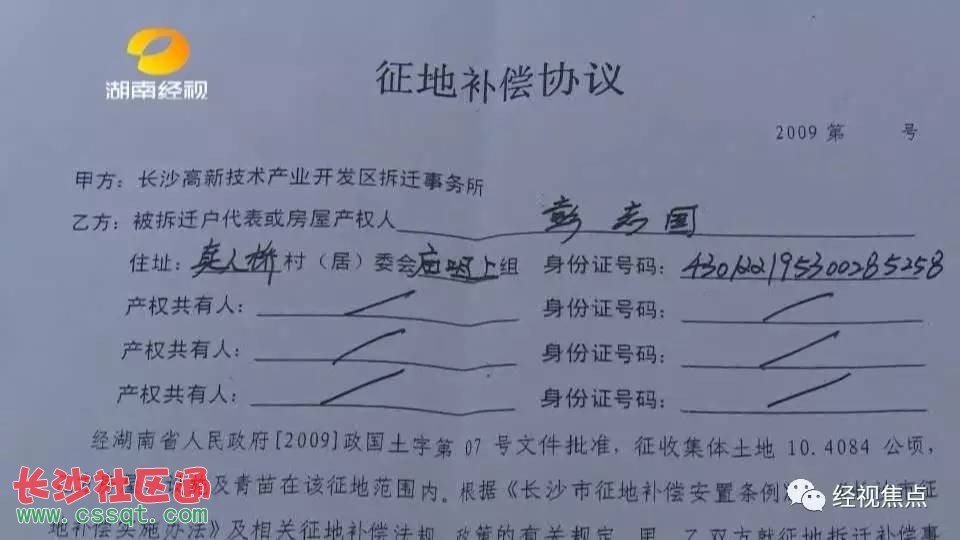 湖南经视
征地补偿协议
2009 第 号
甲方：长沙高新技术产业开发区拆迁事务所
乙方：被拆迁户代表或房屋产权人 彭志国
住址：真人桥村（居）委会庙咀上组 身份证号码：
产权共有人： 身份证号码：
产权共有人： 身份证号码：
产权共有人： 身份证号码：
经湖南省人民政府[2009]政国土字第 07 号文件批准，征收集体土地 10.4084 公顷，
及青苗在该征地范围内。根据《长沙市征地补偿安置条例
地补偿实施办法》及相关征地补偿法规、政策的有关规定，甲、乙双方就征地拆迁补偿事
长沙社区通
www.cssqt.com
经视焦点